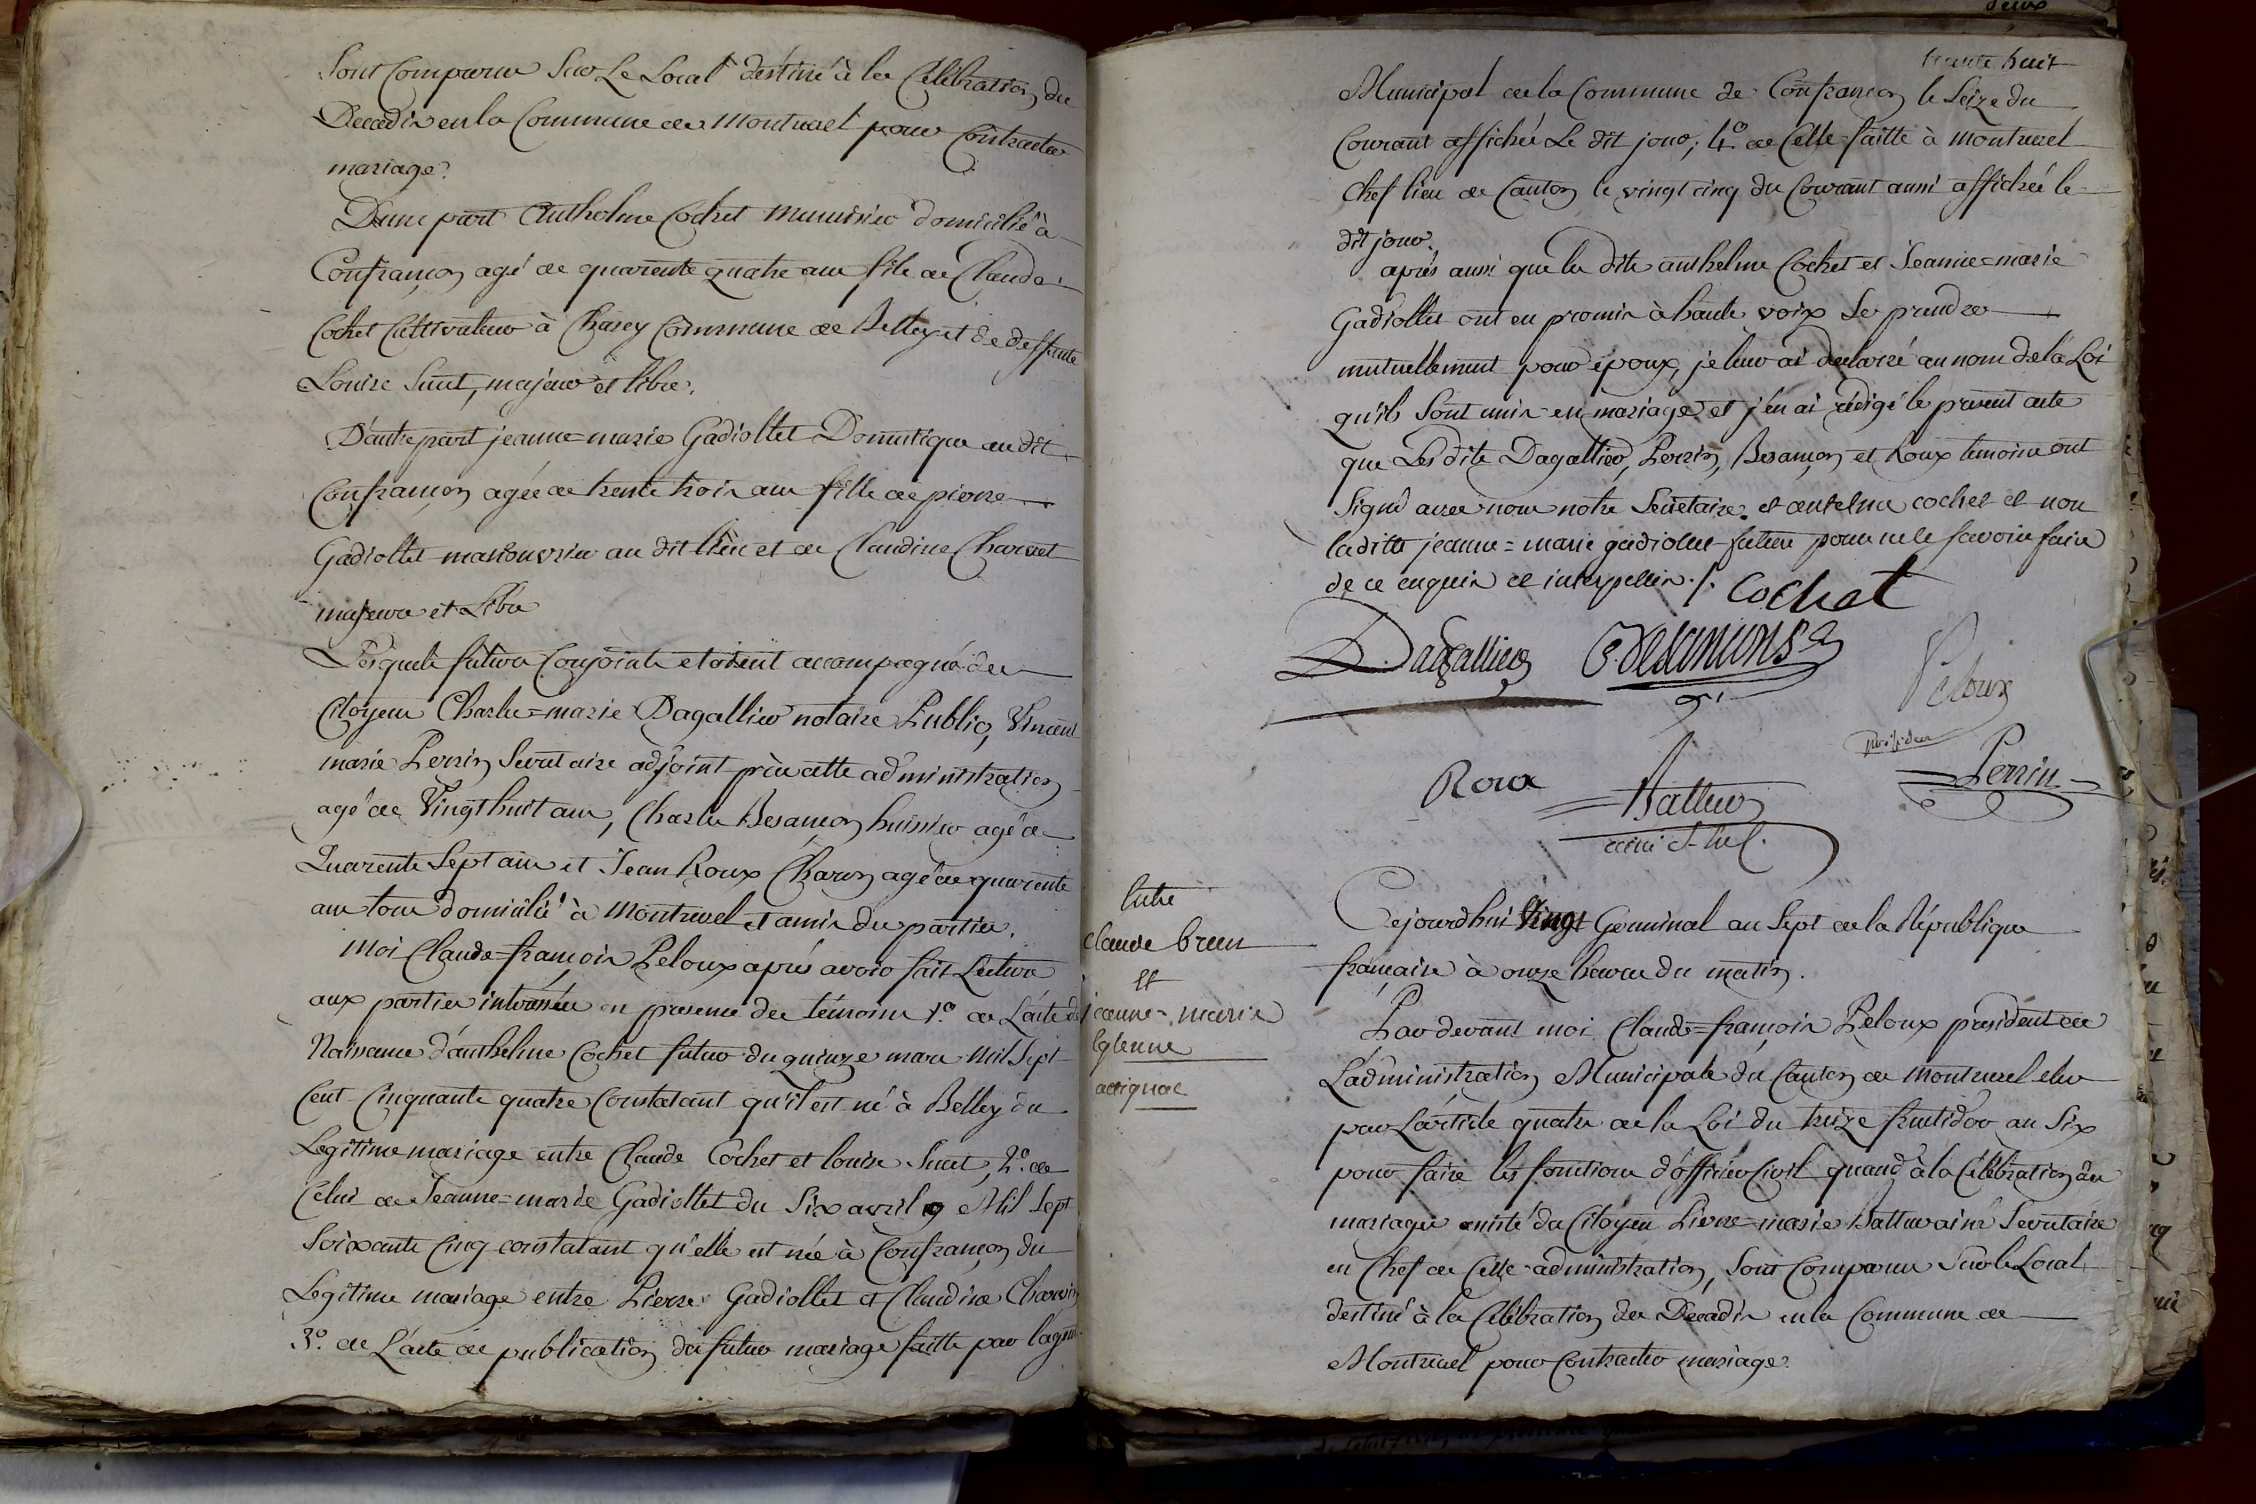 Sont Comparus Sur Le Local destiné à la Célébration du
Decadis en la Commune de Montrevel pour Contracter
mariage.
D'une part Anthelme Cochet Menuisier domicilié à
Confrançon agé de quarente quatre ans fils de Claude
Cochet Cultivateur à Chazey Commune de Belley et de deffunte
Louise Suat, majeur et libre.
D'autre part jeanne=marie Gadiollet Domestique au dit
Confrançon agée de trente trois ans fille de pierre
Gadiollet manouvrier au dit lieu et de Claudine Charvet
majeure et Libre
Lesquels futurs Conjoints etoient accompagnés des
Citoyens Charles=marie Dagallier notaire Public, Vincent
marie Perrin Secretaire adjoint près cette administration
agé de Vingt huit ans, Charles Besançon huissier agé de
Quarente Sept ans et Jean Roux Charon agé de quarente
ans tous domicilié à Montrevel et amis des parties.
Moi Claude=françois Peloux après avoir fait Lecture
aux parties intéressées en presence des témoins 1.º de L'acte de
Naissance d'anthelme Cochet futur du quinze mars Mil Sept
Cent Cinquante quatre Constatant qu'il est né à Belley du
Legitime mariage entre Claude Cochet et louise Suat, 2.º de
Celui de Jeanne=marie Gadiollet du Six avril Mil Sept
Soixante Cinq constatant qu'elle est née à Confrançon du
Legitime mariage entre Pierre Gadiollet et Claudine Charvin
3.º de L'acte de publication du futur mariage faitte par l'agent
trente huit
Municipal de la Commune de Confrançon le Seize du
Courant affichée Le dit jour; 4.º de Celle faitte à Montrevel
Chef lieu de Canton le vingt cinq du Courant aussi affichée le
dit jour.
après aussi que les dits anthelme Cochet et Jeanne=marie
Gadiollet ont eu promis à haute voix Se prendre
mutuellement pour époux, je leur ai declaré au nom de la Loi
qu'ils Sont unis en mariage et j'en ai rédigé le present acte
que Les dits Dagallier, Perrin, Besançon et Roux temoins ont
Signé avec nous notre Secretaire. et antelme cochet et non
laditte jeanne=marie gadiollet future pour ne le savoir faire
de ce enquis et interpellés ./. Cochet
Dagallier C. Besançon
Peloux
président
Roux Batteur Perrin
ainé S. en C.
Entre
claude brun
et
jeanne=marie
Eglenne
attignat
Cejourdhui Vingt Germinal an Sept de la République
française à onze heures du matin.
Par devant moi Claude=françois Peloux président de
L'administration Municipale du Canton de Montrevel elu
par L'article quatre de la Loi du treize fructidor an Six
pour faire les fonctions d'officier Civil quand à la Célébration des
mariages assisté du Citoyen Pierre=marie Batteur ainé Secretaire
en Chef de Cette administration, Sont Comparus Sur le Local
destiné à la Célébration des Decadis en la Commune de
Montrevel pour Contracter mariage.